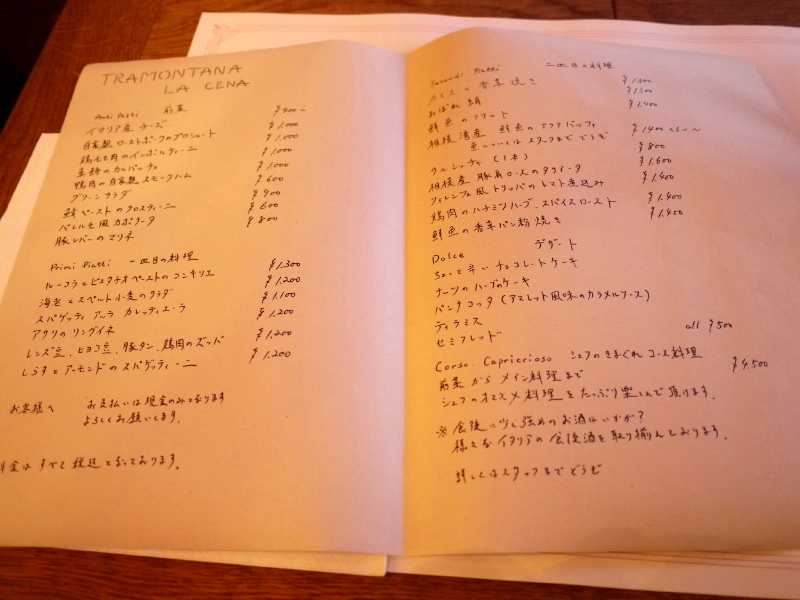 TRAMONTANA
LA CENA
Anti Pasti 前菜
イタリア産 チーズ ¥900〜
自家製 ローストポークのプロシュート ¥1.000
鶏もも肉のインボルティーニ ¥1.000
真梼のカルパッチョ ¥1.000
鴨肉の自家製 スモークハム ¥1.000
グリーンサラダ ¥600
鯖ペーストのクロスティーニ ¥900
パレルモ風カポナータ ¥600
豚レバーのマリネ ¥800
Primi Piatti 一皿目の料理
ルーコラとピスタチオペーストのコンキリエ ¥1.300
海老とスペルト小麦のサラダ ¥1.200
スパゲッティ アーラ カレッティエーラ ¥1.100
アサリのリングイネ ¥1.200
レンズ豆、ヒヨコ豆、豚タン、鶏肉のズッパ ¥1.200
しらすとアーモンドのスパゲッティーニ ¥1.200
お客様へ お支払いは現金のみとなります
よろしくお願いします。
料金は すべて 税込 となっております。
Secondi Piatti 二皿目の料理
の香草焼き ¥1.300
¥1.300
鮮魚のフリット ¥1.400
相模湾産 鮮魚のアクアパッツァ
魚についてはスタッフまでどうぞ ¥1400くらい〜
サルシッチャ (1本) ¥800
相模産 豚肩ロースのタリアータ ¥1.600
フィレンツェ風トリッパのトマト煮込み ¥1.400
鶏肉のハチミツハーブ、スパイスロースト ¥1.400
鮮魚の香草パン粉焼き ¥1.400
Dolce デザート
ちょっと辛いチョコレートケーキ
ナーツのハーブのケーキ
パンナコッタ (アマレット風味のカラメルソース)
ティラミス
セミフレッド all ¥500
Corso Capriccioso シェフのきまぐれ コース料理
前菜から メイン料理まで ¥4.500
シェフのオススメ料理をたっぷり楽しんで頂けます。
※ 食後に少し強めのお酒はいかが?
様々なイタリアの食後酒を取り揃えております。
詳しくはスタッフまでどうぞ